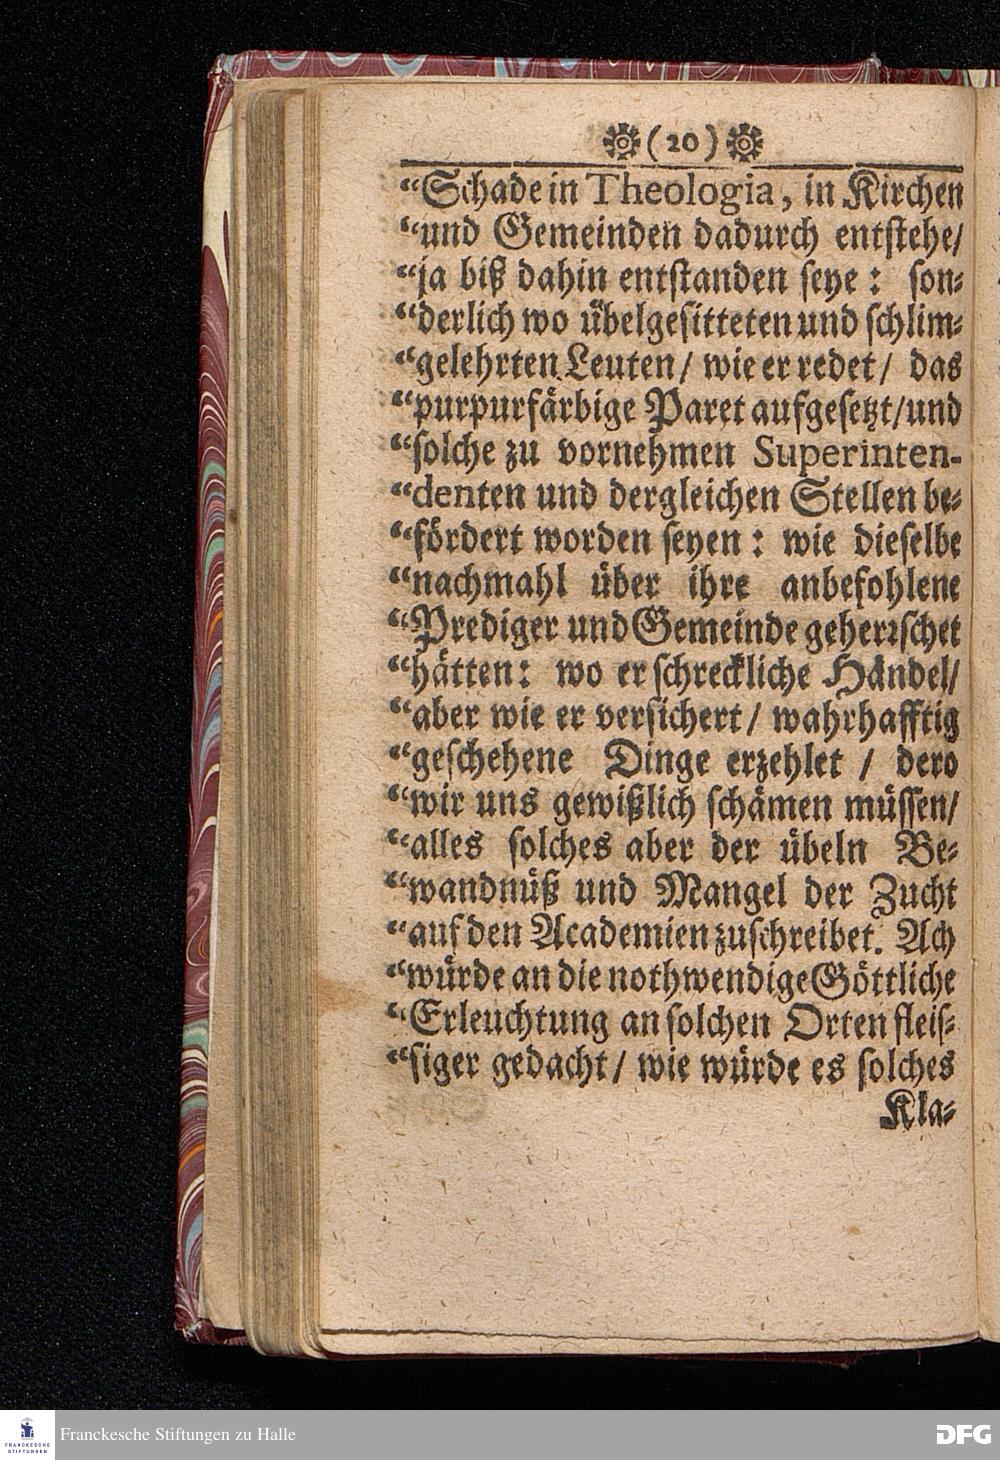 (20)
“Schade in Theologia, in Kirchen
“und Gemeinden dadurch entstehe/
“ja biß dahin entstanden seye: son-
“derlich wo übelgesitteten und schlim-
“gelehrten Leuten/ wie er redet/ das
“purpurfärbige Paret aufgesetzt/und
“solche zu vornehmen Superinten-
“denten und dergleichen Stellen be-
“fördert worden seyen: wie dieselbe
“nachmahl über ihre anbefohlene
“Prediger und Gemeinde geherrschet
“hätten: wo er schreckliche Händel/
“aber wie er versichert/ wahrhafftig
“geschehene Dinge erzehlet / dero
“wir uns gewißlich schämen müssen/
“alles solches aber der übeln Be-
“wandnüß und Mangel der Zucht
“auf den Academien zuschreibet. Ach
“würde an die nothwendige Göttliche
“Erleuchtung an solchen Orten fleis-
“siger gedacht/ wie würde es solches
Kla-
FRANCKESCHE
STIFTUNGEN
Franckesche Stiftungen zu Halle
DFG